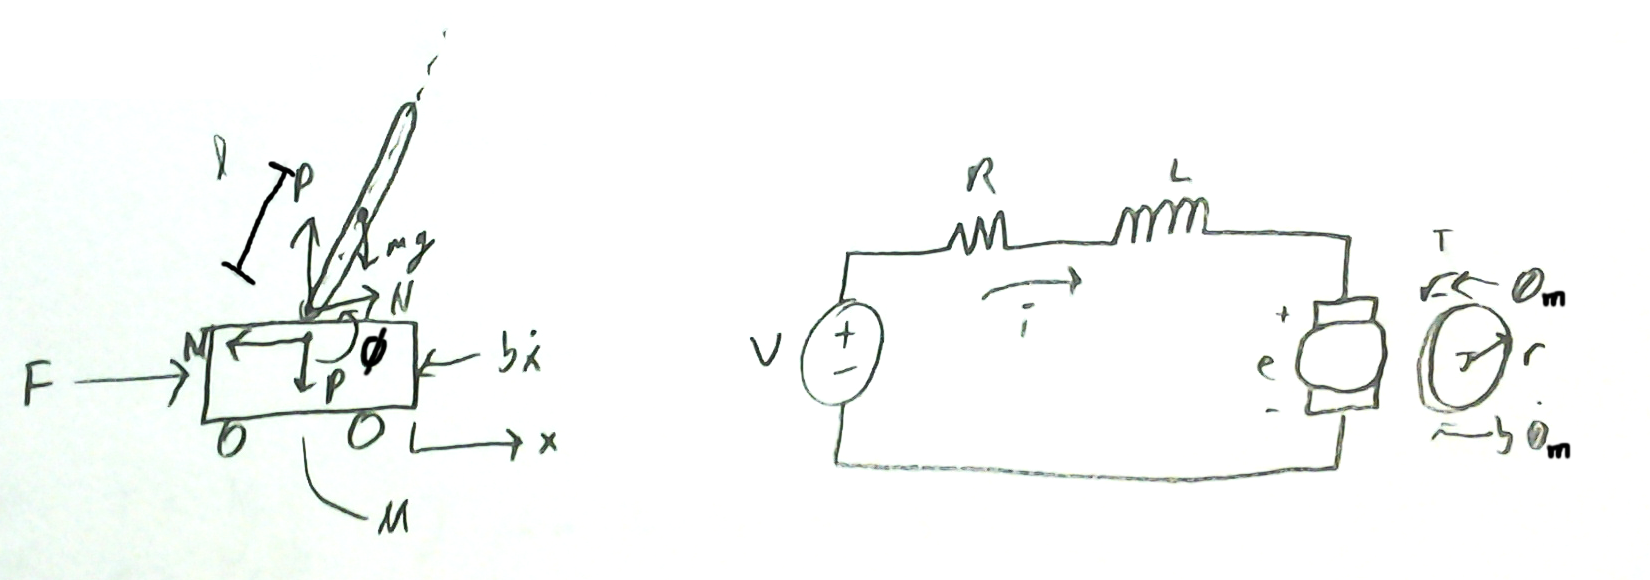 l
P
mg
N
N
F
P
ϕ
bẋ
x
M
R
L
i
V
+
−
+
e
-
T
θm
r
J
b θ̇m